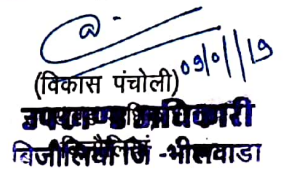 09/01/19
(विकास पंचोली)
उपखण्ड अधिकारी
बिजौलियां जि -भीलवाडा